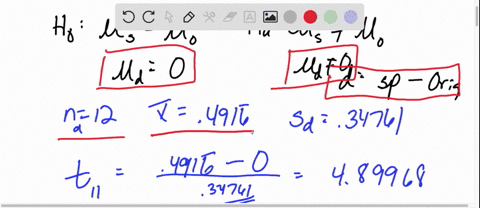 H₀: μs = μ₀ Ha μs ≠ μ₀
μd = 0 μd ≠ 0
d = sp - Orig
nd = 12 x̄ = .4916̄ sd = .34761
t₁₁ = .4916̄ - 0 / .34761 = 4.89968